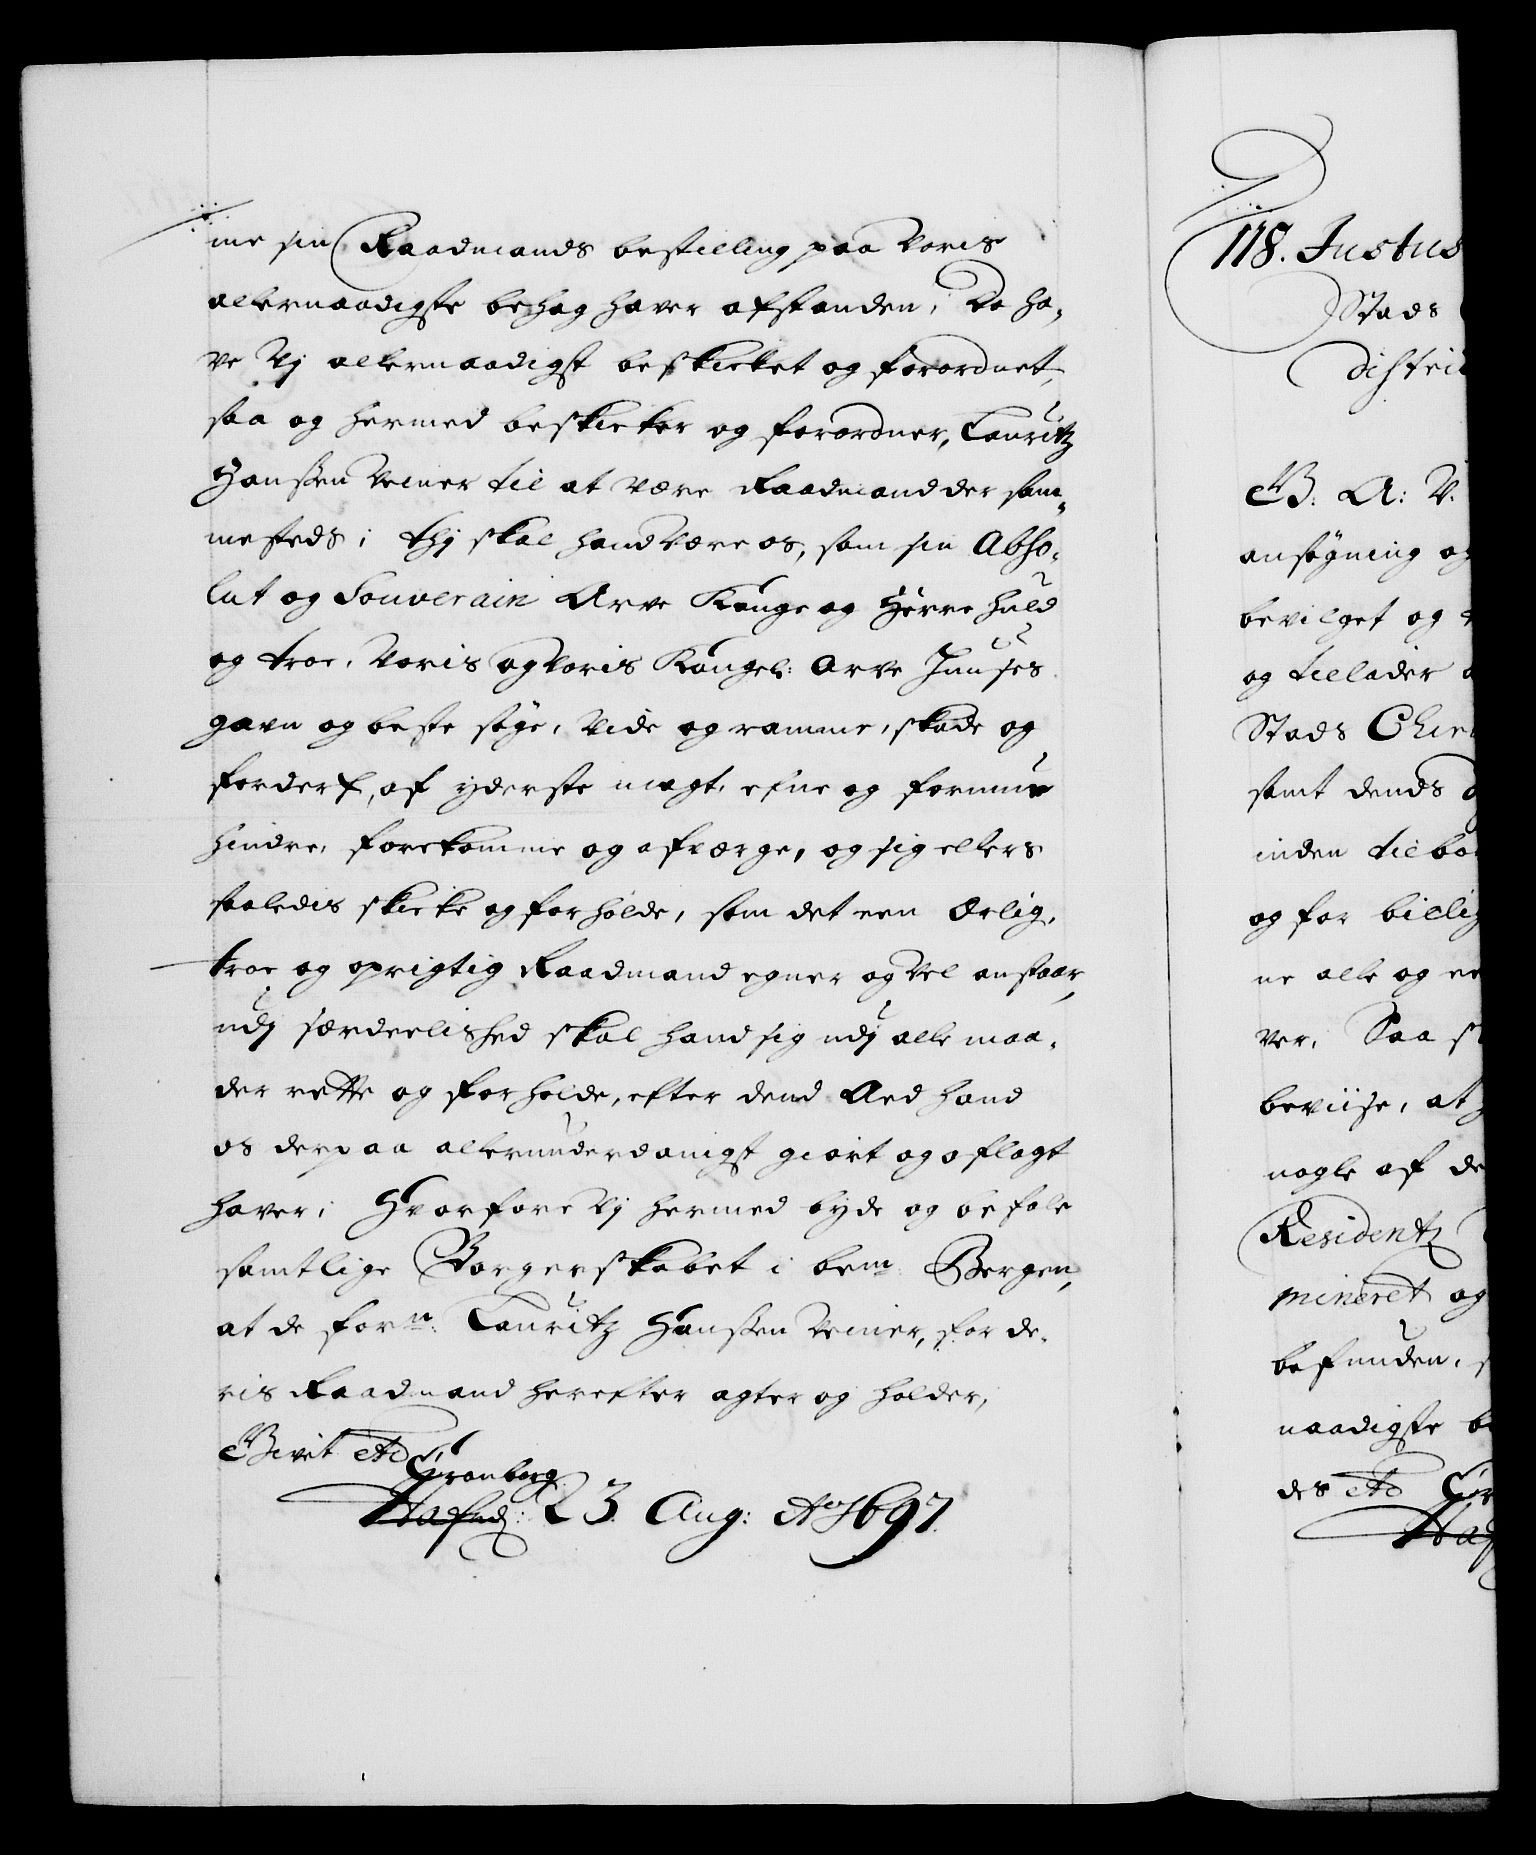 me sin Raadmands bestilling paa Voris
allernaadigste behag haver afstanden; Da ha-
ve Vj allernaadigst beskicket og forordnet,
saa og hermed beskicker og forordner, Lauritz
Hanssen Weiner til at være Raadmand der sam-
mesteds; thj skal hand være os, som sin Abso-
lut og Souverain Arve Konge og Herre huld
og troe, Voris og Voris Kongel: Arve Huuses
gavn og beste søge, Vide og ramme, skade og
forderf, af yderste magt, efne og formue
hindre, forekomme og afværge, og sig ellers
saaledis skicke og forholde, som det een Ærlig,
troe og oprigtig Raadmand egner og Vel anstaar,
udj særdeelished skal hand sig udj alle maa-
der rette og forholde, efter dend Aed hand
os derpaa allerunderdanigst giort og aflagt
haver; Hvorfore Vj hermed byde og befale
samtlige Borgerskabet i bemte Bergen,
at de forn: Lauritz Hanssen Weiner, for de-
ris Raadmand herefter agter og holder,
Givet etc
Cronborg
Hafnæ: 23. Aug: Ao 1697.
118. Justus
Stads
distri
G: A: V.
ansøgning og
bevilget og
og tillader
Stads Chri
samt dends
inden til
og for billig
ne alle og
ver, Saa
beviise, at
nogle af de
Residentz
mineret og
befunden,
naadigste be
des etc Cr
Haf